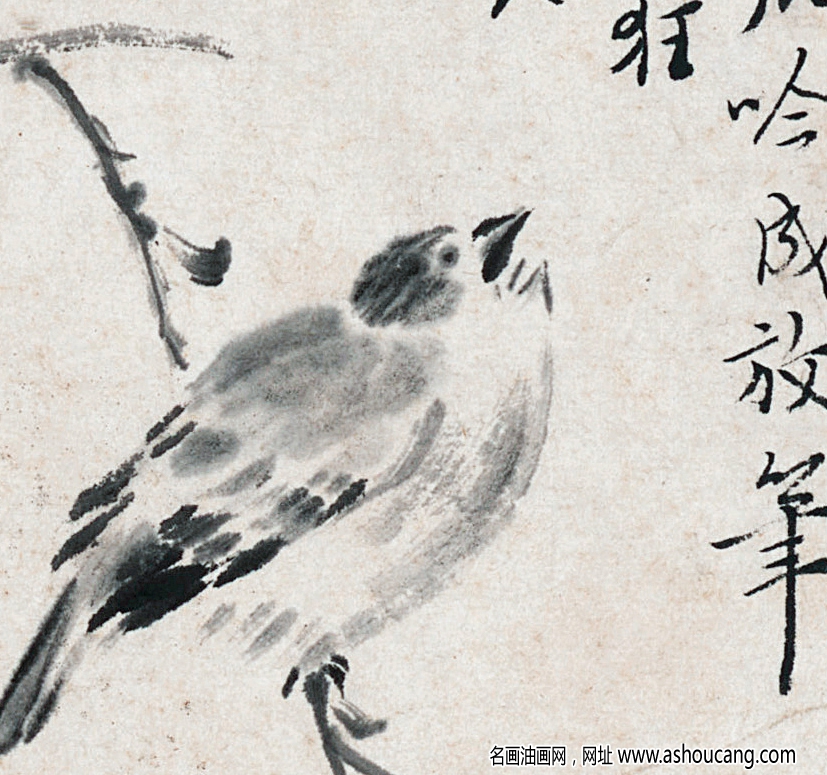 吟成放筆
狂
名画油画网，网址 www.ashoucang.com